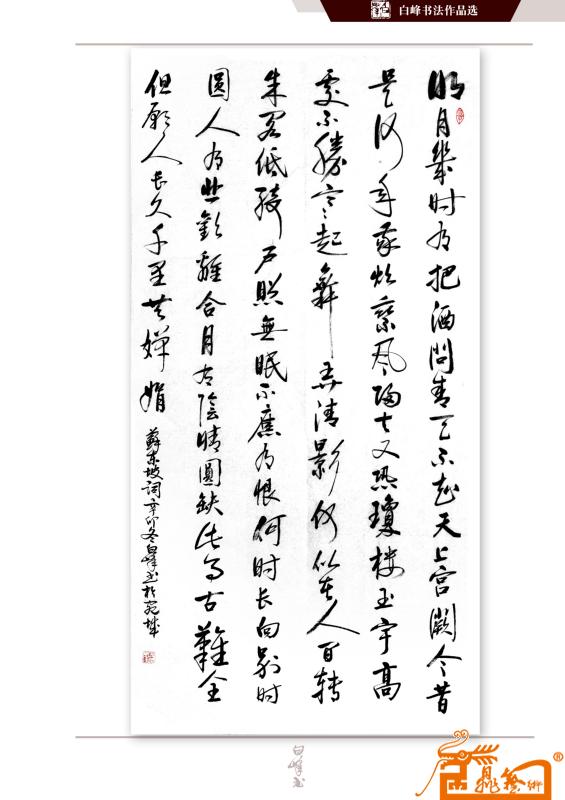 白峰书法作品选
明月幾时有把酒問青天不知天上宫闕今昔
是何年我欲乘风歸去又恐瓊楼玉宇高
處不勝寒起舞弄清影何似在人间转
朱阁低绮户照無眠不應有恨何时长向别时
圆人有悲歡離合月有陰晴圆缺此事古難全
但愿人长久千里共婵娟
蘇东坡词辛卯冬白峰书於宛城
白峰书